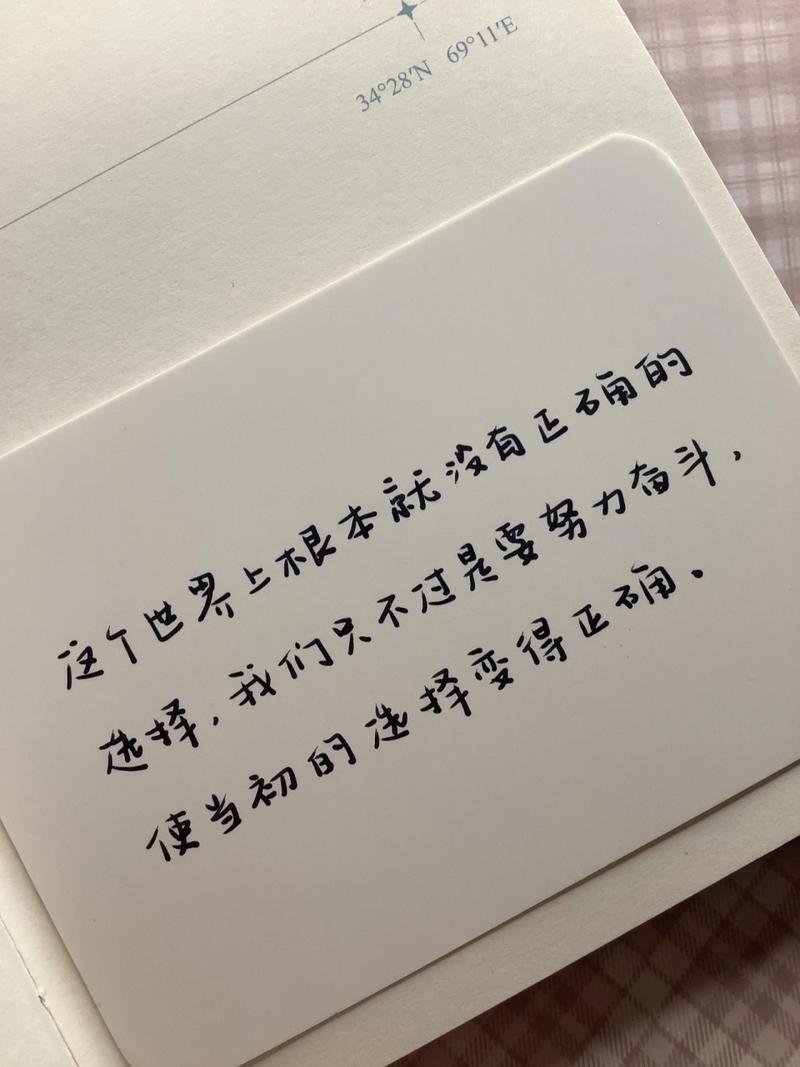 34°28′N 69°11′E
这个世界上根本就没有正确的
选择，我们只不过是要努力奋斗，
使当初的选择变得正确。